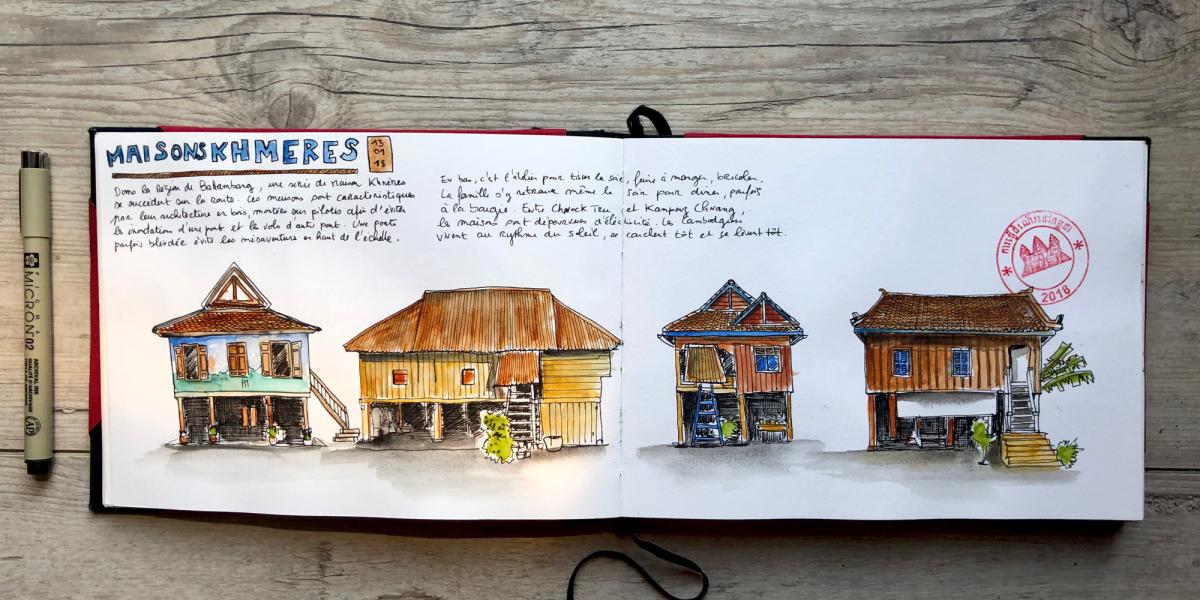 MAISONS KHMERES
13
01
18
Dans la Région de Batambang, une série de Maison Khmères
se succèdent sur la route. Ces maisons sont caractéristiques
par leur architecture en bois, montées sur pilotis afin d'éviter
la inondation d'une part et le vols d'autre part. Une porte
parfois blindée évite les mésaventures en haut de l'échelle.
En bas, c'est l'atelier pour tisser la soie, faire à manger, bricoler.
La famille s'y retrouve même le soir pour diner, parfois
à la bougie. Entre Chnock Tru et Kampong Chnang,
la maisons sont dépourvues d'électricité. Les Cambodgiens
vivent au rythme du soleil, se couchent tôt et se lèvent tôt.
2018
PIGMA
MICRON 02
ARCHIVAL INK